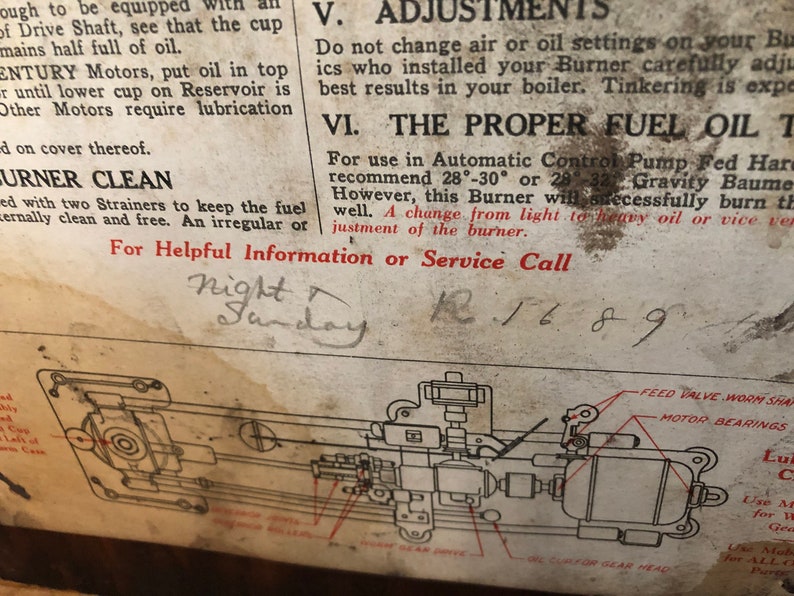 ough to be equipped with an
of Drive Shaft, see that the cup
mains half full of oil.
ENTURY Motors, put oil in top
or until lower cup on Reservoir is
Other Motors require lubrication
ed on cover thereof.
BURNER CLEAN
ed with two Strainers to keep the fuel
ternally clean and free. An irregular or
V. ADJUSTMENTS
Do not change air or oil settings on your Bu
ics who installed your Burner carefully adju
best results in your boiler. Tinkering is expe
VI. THE PROPER FUEL OIL T
For use in Automatic Control Pump Fed Hard
recommend 28°-30° or 28°-32° Gravity Baume
However, this Burner will successfully burn th
well. A change from light to heavy oil or vice ver
justment of the burner.
For Helpful Information or Service Call
Night &
Sunday R. 1689
FEED VALVE WORM SHA
MOTOR BEARINGS
WORM GEAR DRIVE
OIL CUP FOR GEAR HEAD
nd
bly
nd
Cup
Left of
rm Case
Lu
C
Use M
for W
Gea
Use Mob
for ALL O
Parts